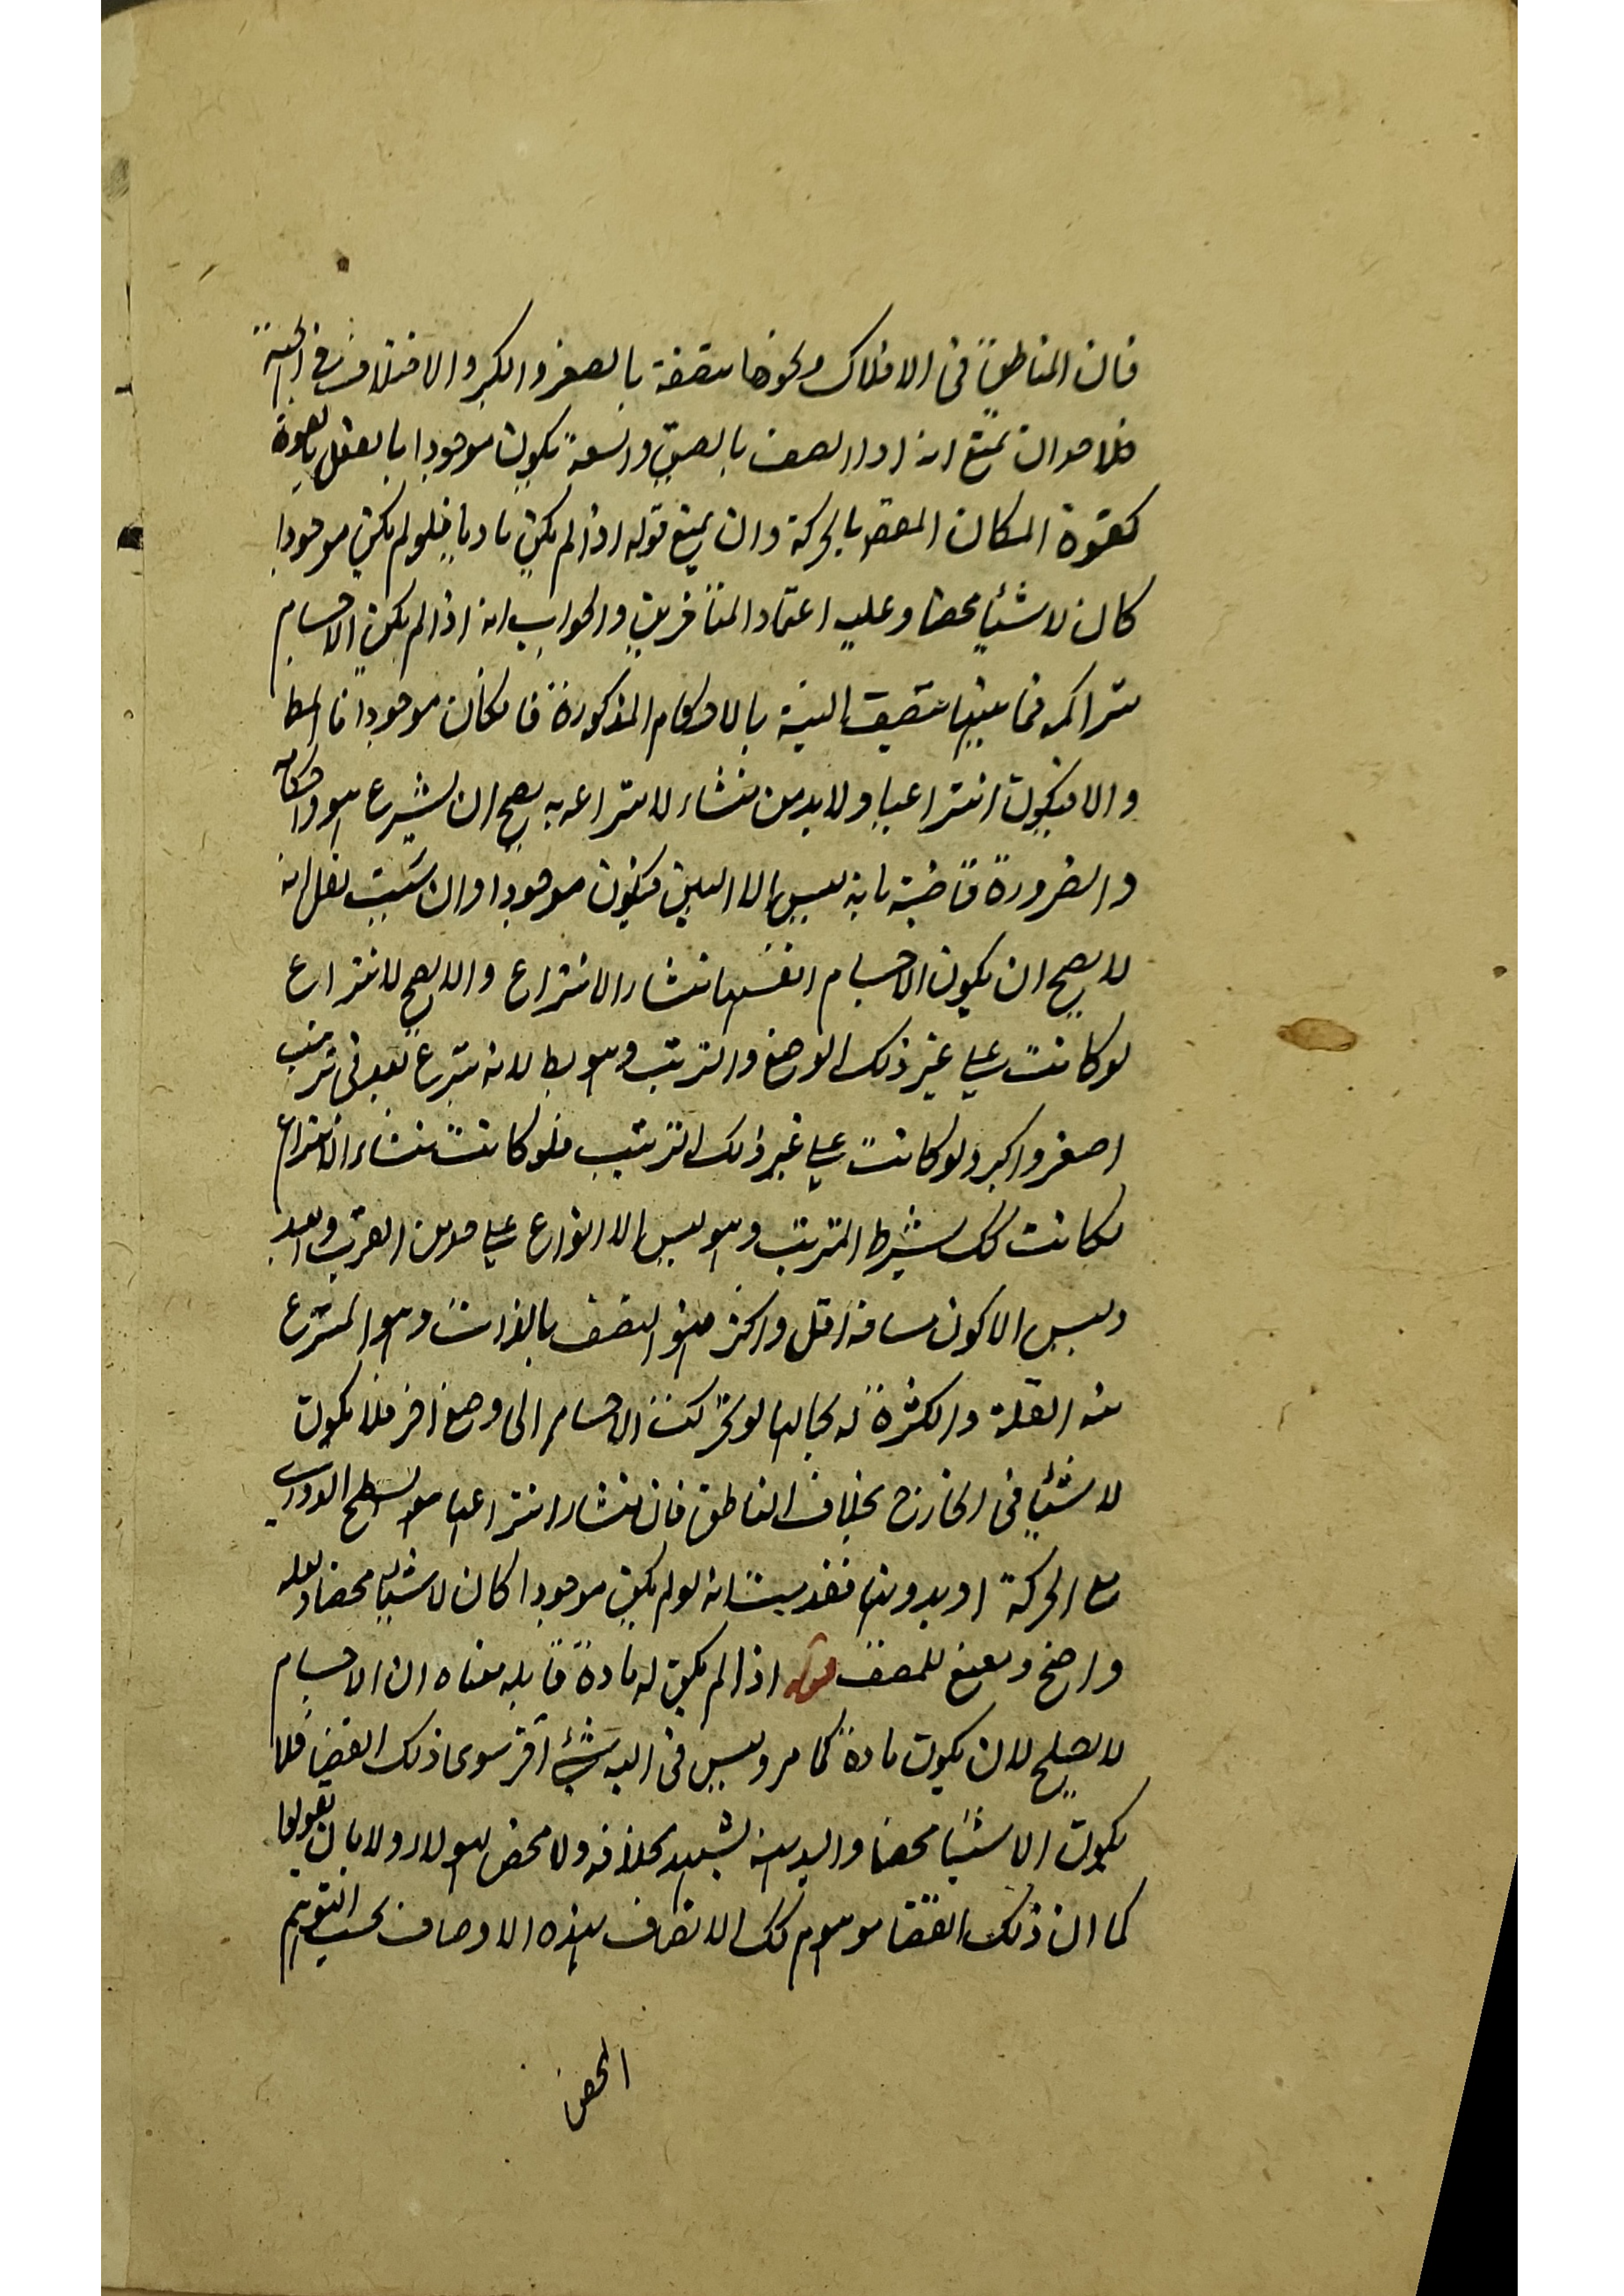 فان المناطق فى الافلاك ونحوها متصفة بالصغر والكبر والاختلاف فى الجهة
فلاحد ان يمنع انه اذا اتصف بالضيق والسعة يكون موجودا بالفعل بالقوة
كقوة المكان بالحركة وان يمنع قوله اذا لم يكن ماديا فلو لم يكن موجودا
كان لاشيئا محضا وعليه اعتماد المتأخرين والجواب انه اذا لم يكن الاجسام
متراكمه فما بينها متصف البتة بالاحكام المذكورة فان كان موجودا فالمط
والا فيكون انتزاعيا ولابد من منشاء لانتزاعه به يصح ان ينتزع هو واحكامه
والضرورة قاضية بانه ليس الا البين فيكون موجودا وان شئت فقل انه
لا يصح ان يكون الاجسام انفسها منشاء الانتزاع والا لصح الانتزاع
لو كانت على غير ذلك الوضع والترتيب وهو بط لانه ينتزع بعد فى ترتيب
اصغر واكبر ولو كانت على غير ذلك الترتيب فلو كانت منشاء الانتزاع
لكانت كك بشرط الترتيب وهو ليس الا انواع على حد من القرب والبعد
وليس الا كون مسافة اقل واكثر فهو المتصف بالذات وهو المنتزع
منه القلة والكثرة له بحالها لو تحركت الاجسام الى وضع اخر فلا يكون
لاشيئا فى الخارج بخلاف المناطق فان منشاء انتزاعها هو السطح الدورى
مع الحركة او بدونها فقد ثبت انه لو لم يكن موجودا كان لاشيئا محضا ولعله
واضح ومقنع للمنصف قوله اذا لم يكن له مادة قابله معناه ان الاجسام
لا يصلح لان يكون مادة كما مر وليس فى البين شئ آخر سوى ذلك الفضا فلا
يكون الا شيئا محضا والبديهة تشهد بخلافه ولا محض لهولاء ولا بان يقولوا
كما ان ذلك الفضا موهوم كك الاتصاف بهذه الاوصاف بحسب التوهم
المحض